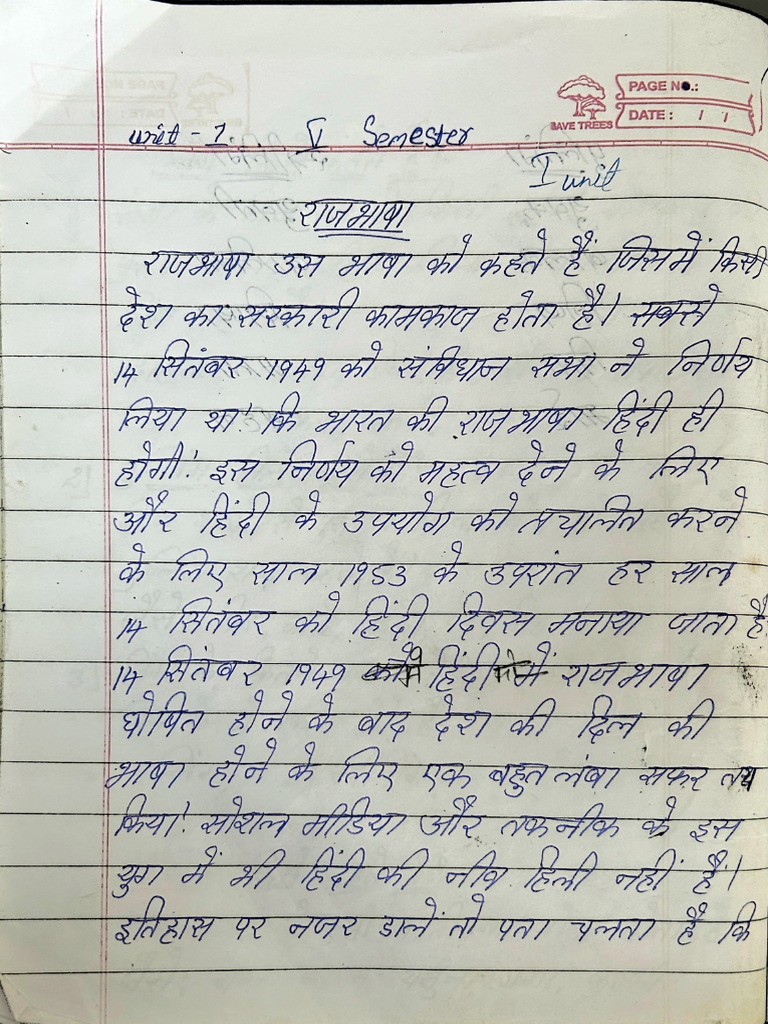 SAVE TREES
PAGE No.:
DATE: / /
unit - 1 V Semester
I unit
राजभाषा
राजभाषा उस भाषा को कहते हैं जिसमें किसी
देश का सरकारी कामकाज होता है। सबसे
14 सितंबर 1949 को संविधान सभा ने निर्णय
लिया था। कि भारत की राजभाषा हिंदी ही
होगी। इस निर्णय को महत्व देने के लिए
और हिंदी के उपयोग को प्रचलित करने
के लिए साल 1953 के उपरांत हर साल
14 सितंबर को हिंदी दिवस मनाया जाता है
14 सितंबर 1949 हिंदी में राजभाषा
घोषित होने के बाद देश की दिल की
भाषा होने के लिए एक बहुत लंबा सफर तय
किया। सोशल मीडिया और तकनीक के इस
युग में भी हिंदी की नीव हिली नहीं हैं।
इतिहास पर नजर डालें तो पता चलता है कि